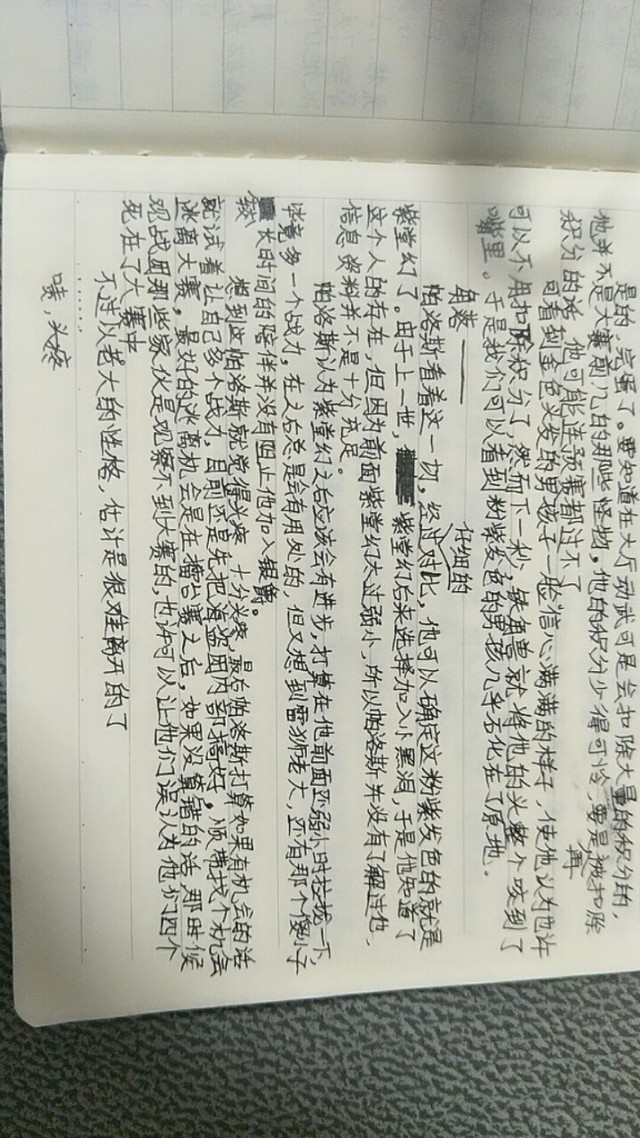 是的，完蛋了。要知道在大厅动武可是会扣除大量的积分的，
他并不是大赛前几的那些怪物，他的积分少得可怜，要是再被扣除
积分的话，他可能连预赛都过不了
可看到金色头发的男孩子一脸信心满满的样子，使他认为也许
可以不用扣除积分了，然而下一秒，铁角兽就将他的头整个咬到了
嘴里。于是我们可以看到粉紫发色的男孩几乎石化在了原地。
角落——
帕洛斯看着这一切，经过仔细的对比，他可以确定这粉紫发色的就是
紫堂幻了。由于上一世，紫堂幻后来选择加入小黑洞，于是他知道了
这个人的存在，但因为前面紫堂幻太过弱小，所以帕洛斯并没有了解过他，
信息资料并不是十分充足。
帕洛斯认为紫堂幻之后应该会有进步，打算在他前面还弱小时拉拢一下，
毕竟多一个战力，在之后总是会有用处的，但又想到雷狮老大，还有那个傻小子
长时间的陪伴并没有阻止他加入银爵。
想到此帕洛斯就觉得头疼，十分头疼，最后帕洛斯打算如果有机会的话
就试着让自己多个战力，目前还是先把海盗团内部搞好。顺带找个机会
逃离大赛，最好的逃离机会是在擂台赛之后，如果没算错的话，那时候
观战团那些家伙是观察不到大赛的，也许可以让他们误认为他们四个
死在了大赛中
不过以老大的性格，估计是很难离开的了
咦，头疼